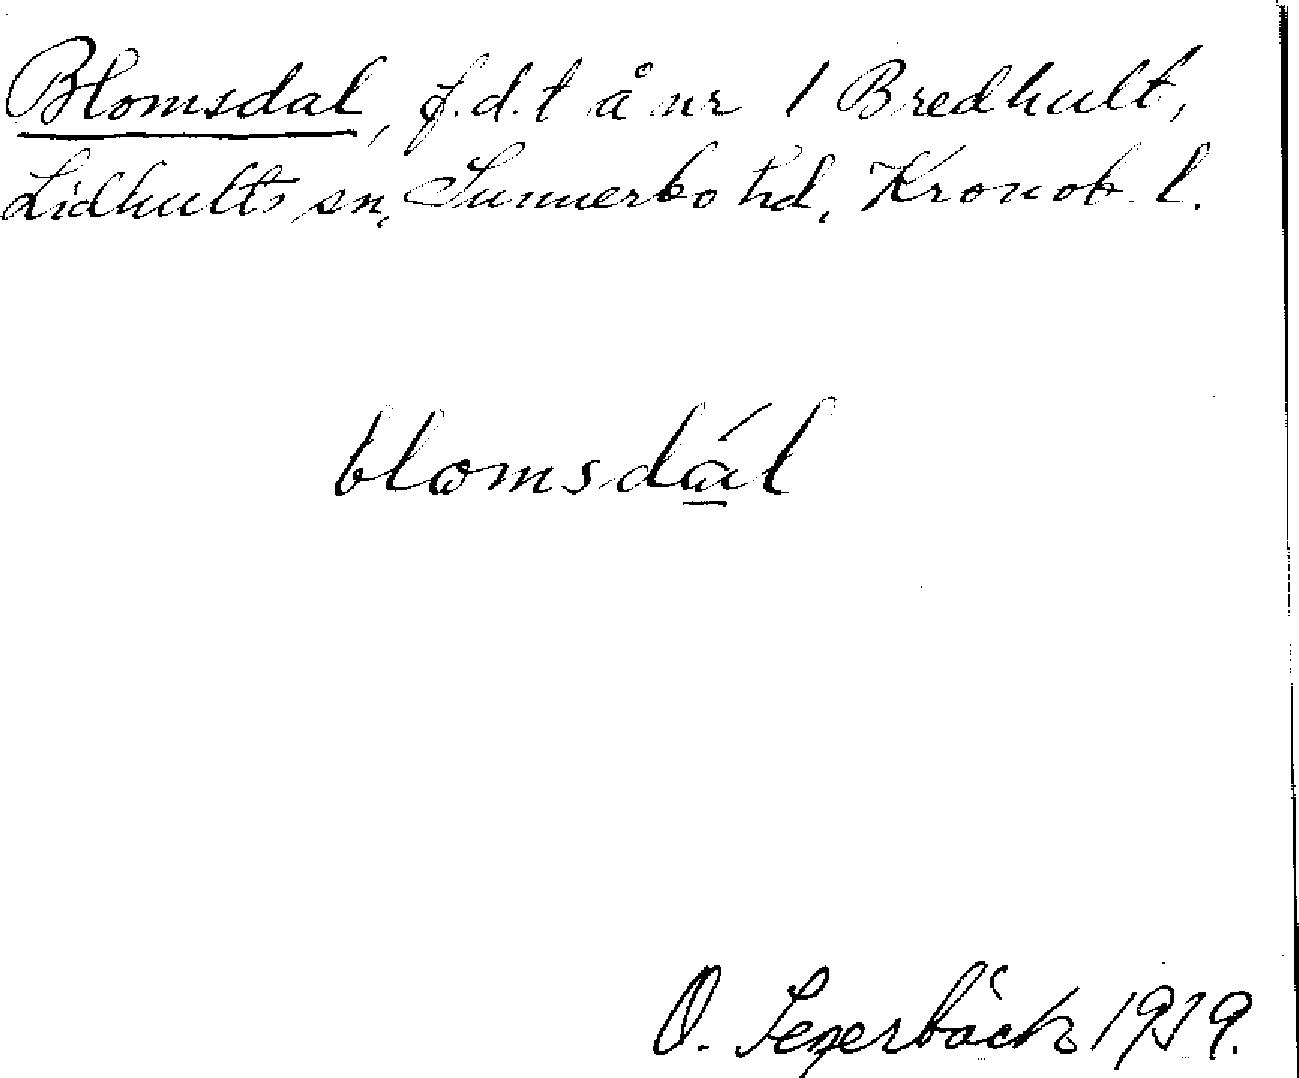 Blomsdal, f.d.t å nr 1 Bredhult,
Lidhults sn, Sunnerbo hd, Kronob. l.
blomsdál
O. Segerbäck 1919.